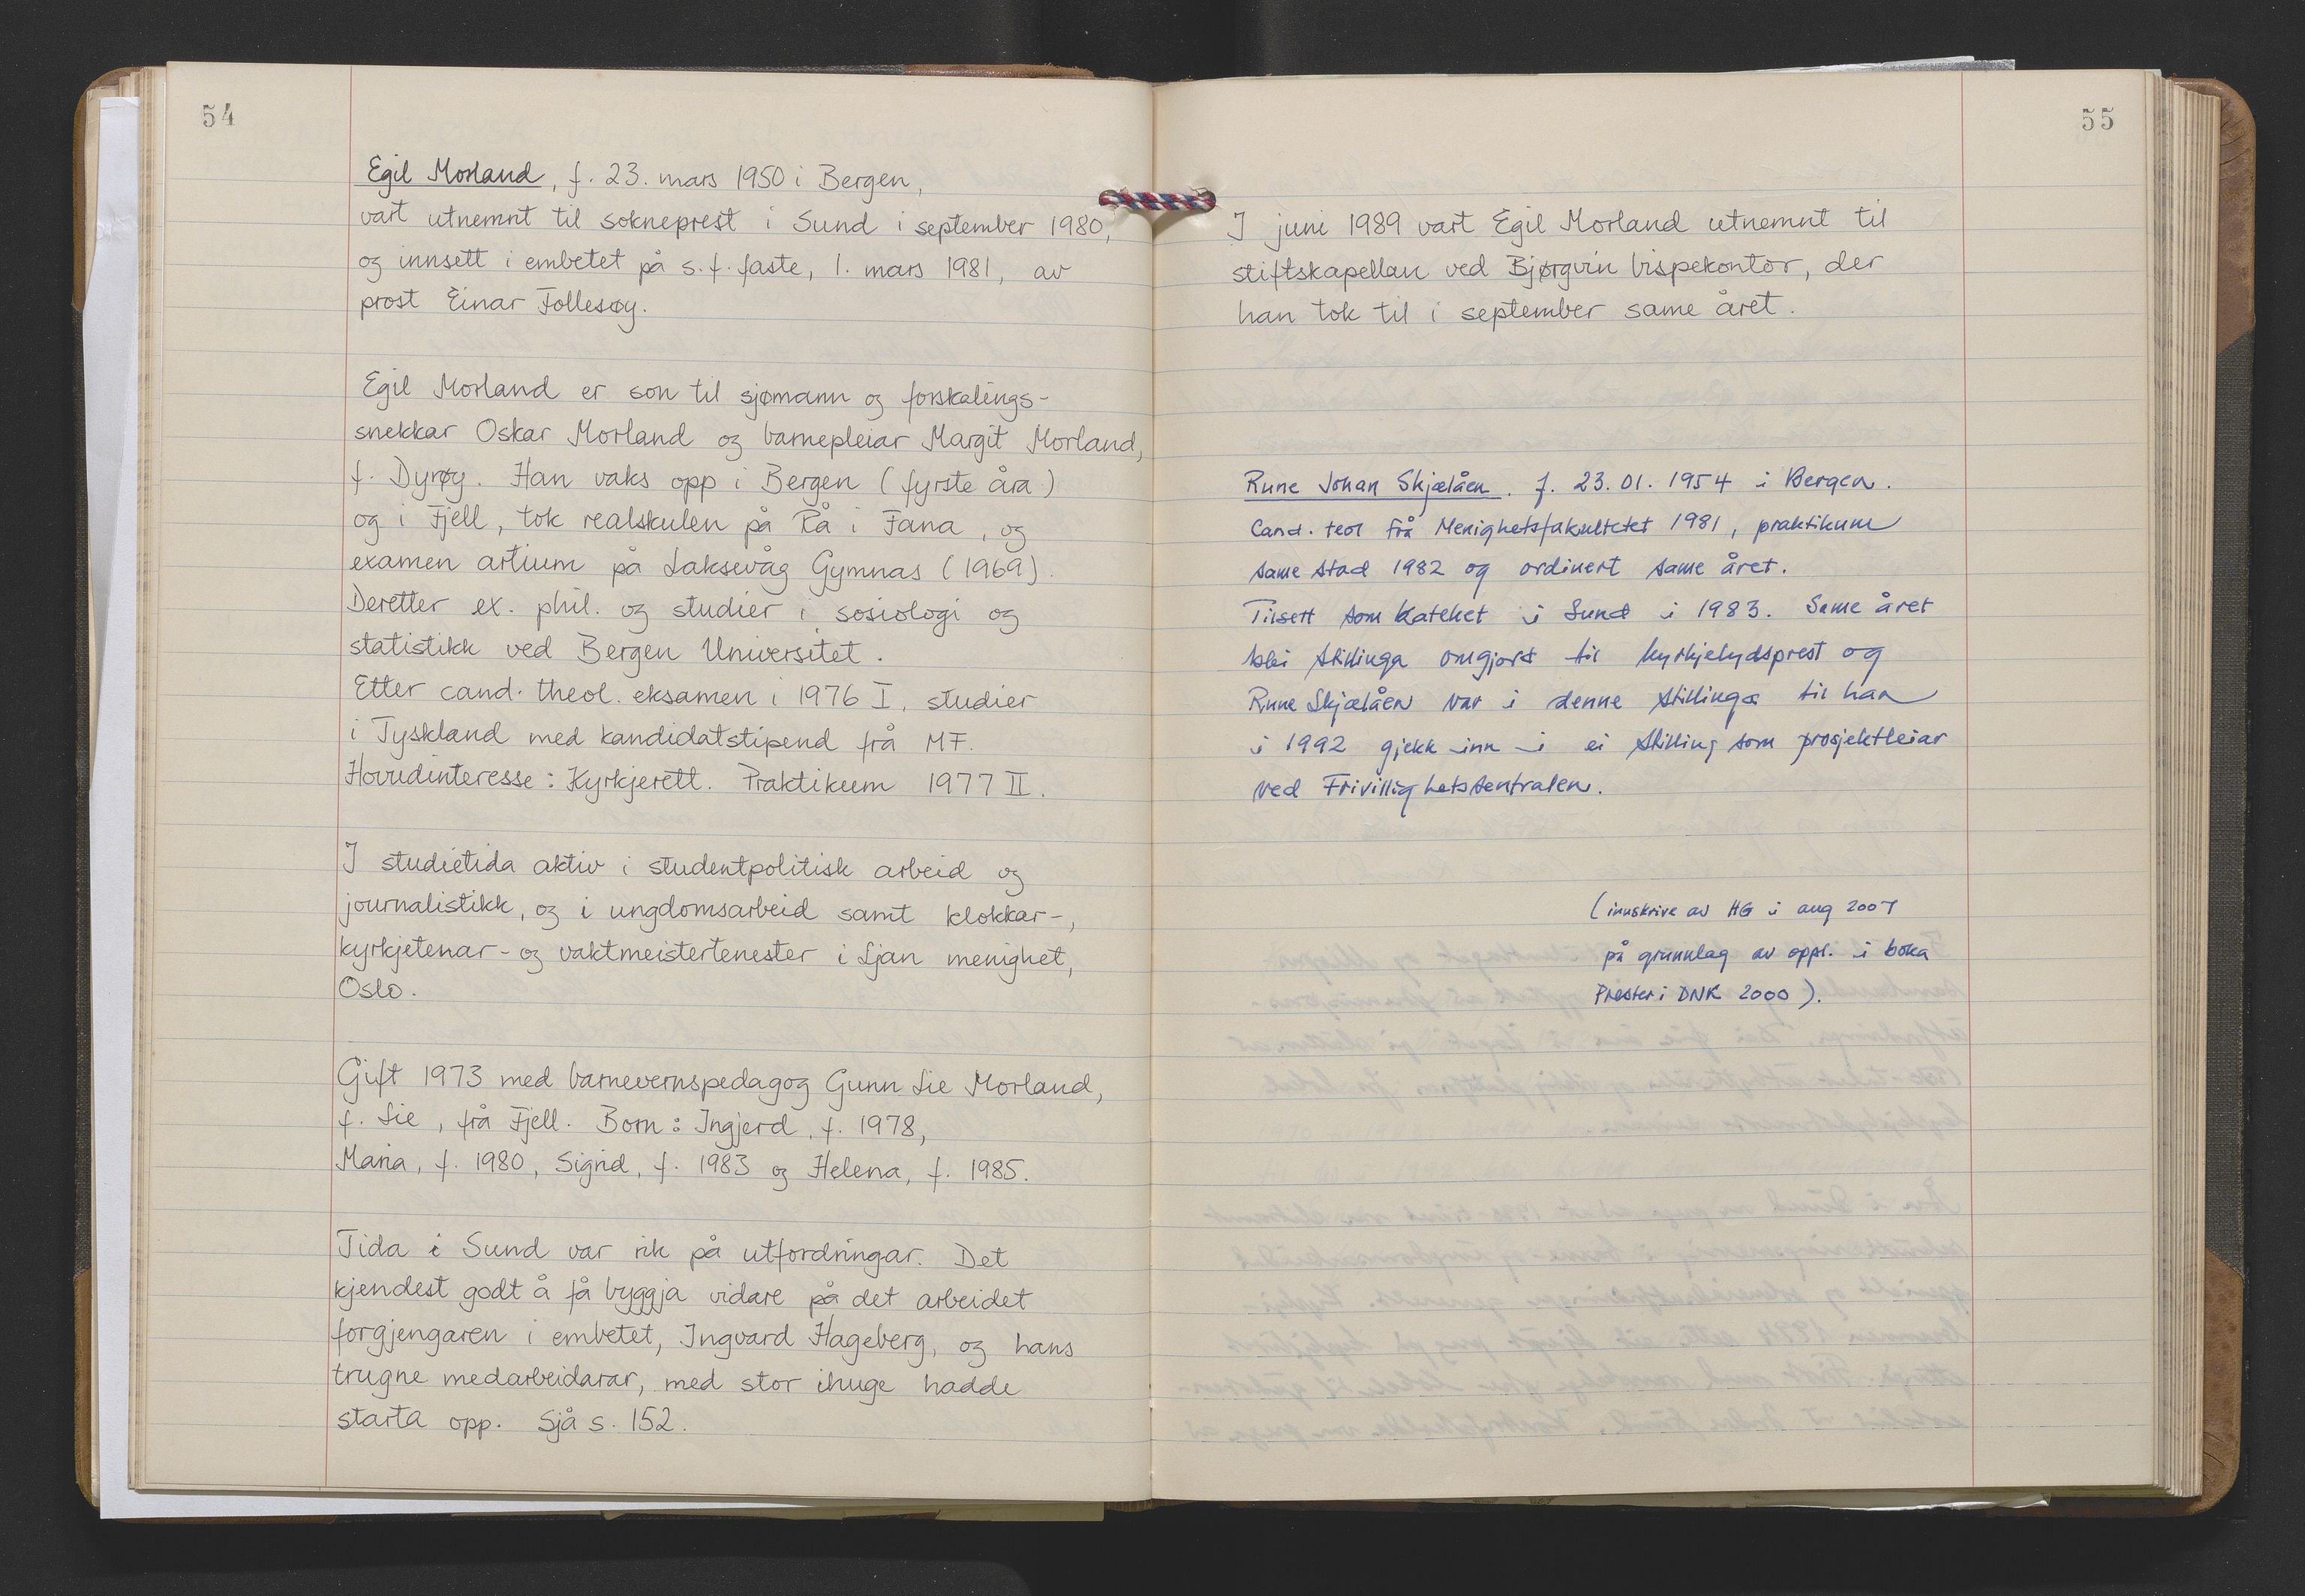 54
Egil Morland, f. 23. mars 1950 i Bergen,
vart utnemnt til sokneprest i Sund i september 1980,
og innsett i embetet på s. f. faste, 1. mars 1981, av
prost Einar Follesøy.
Egil Morland er son til sjømann og forskalings-
snekkar Oskar Morland og barnepleiar Margit Morland,
f. Dyrøy. Han vaks opp i Bergen (fyrste åra)
og i Fjell, tok realskulen på Rå i Fana, og
examen artium på Laksevåg Gymnas (1969).
Deretter ex. phil. og studier i sosiologi og
statistikk ved Bergen Universitet.
Etter cand. theol. eksamen i 1976 I, studier
i Tyskland med kandidatstipend frå MF.
Hovudinteresse: Kyrkjerett. Praktikum 1977 II.
I studietida aktiv i studentpolitisk arbeid og
journalistikk, og i ungdomsarbeid samt klokkar-,
kyrkjetenar- og vaktmeistertenester i Ljan menighet,
Oslo.
Gift 1973 med barnevernspedagog Gunn Lie Morland,
f. Lie, frå Fjell. Born: Ingjerd, f. 1978,
Maria, f. 1980, Sigrid, f. 1983 og Helena, f. 1985.
Tida i Sund var rik på utfordringar. Det
kjendest godt å få byggja vidare på det arbeidet
forgjengaren i embetet, Ingvard Hageberg, og hans
trugne medarbeidarar, med stor ihuge hadde
starta opp. Sjå s. 152.
55
I juni 1989 vart Egil Morland utnemnt til
stiftskapellan ved Bjørgvin bispekontor, der
han tok til i september same året.
Rune Johan Skjælåen. f. 23.01.1954 i Bergen.
Cand. teol frå Menighetsfakultetet 1981, praktikum
same stad 1982 og ordinert same året.
Tilsett som kateket i Sund i 1983. Same året
blei stillinga omgjort til kyrkjelydsprest og
Rune Skjælåen var i denne stillinga til han
i 1992 gjekk inn i ei stilling som prosjektleiar
ved Frivillighetssentralen.
(innskrive av HG i aug 2007
på grunnlag av oppl. i boka
Prester i DNK 2000).